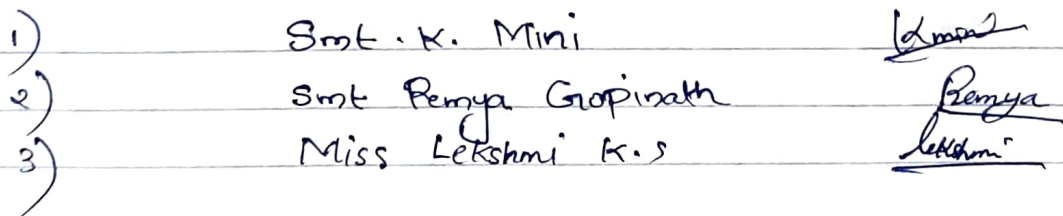 1) Smt. K. Mini Kmini
2) Smt Remya Gopinath Remya
3) Miss Lekshmi K.S Lekshmi